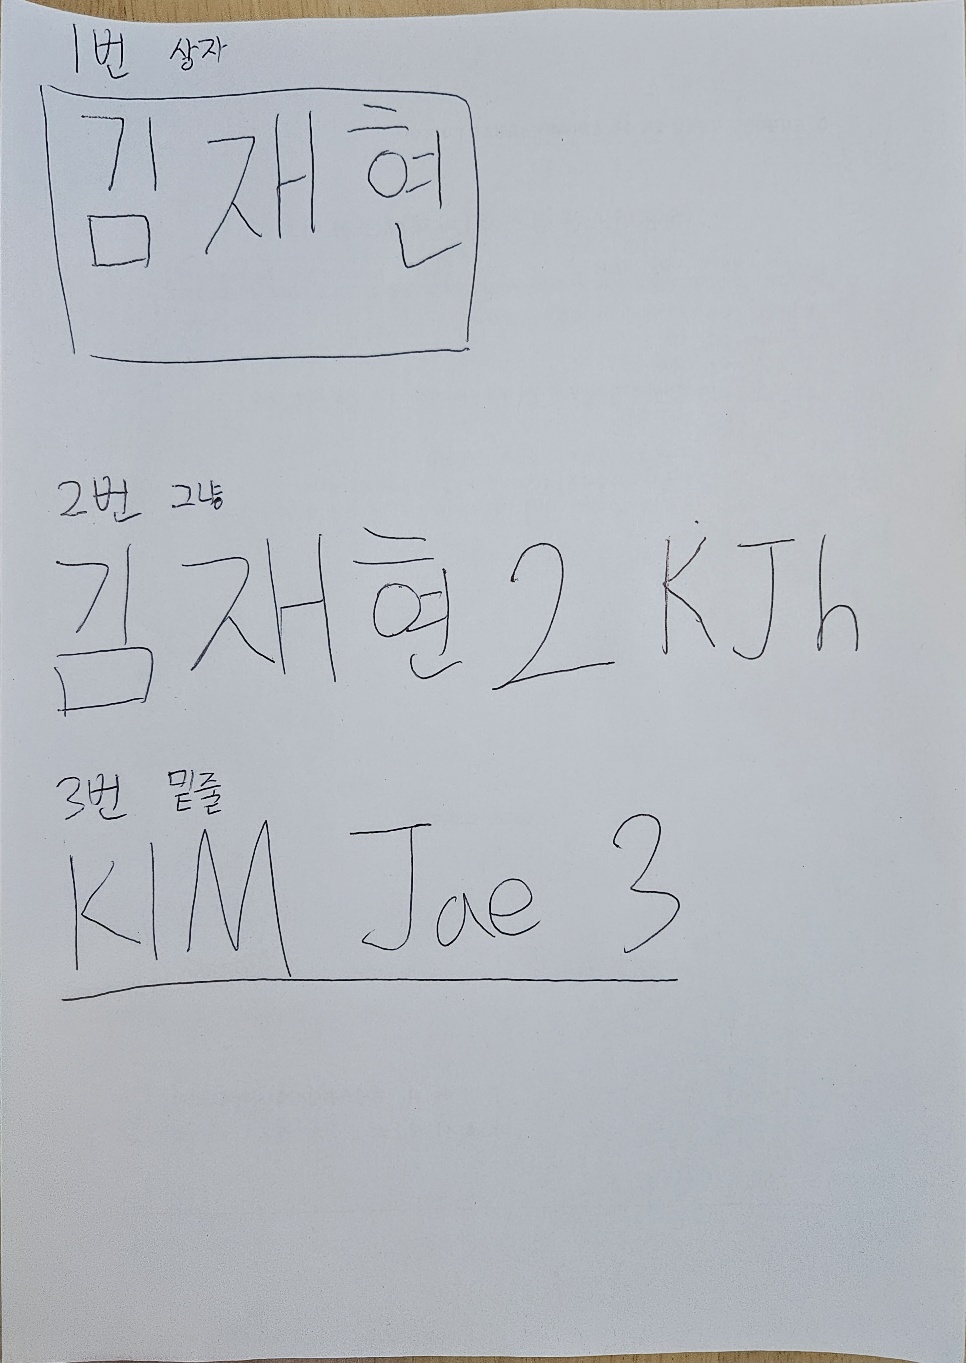 1번 상자
김재현
2번 그냥
김재현2 KJh
3번 밑줄
KIM Jae 3